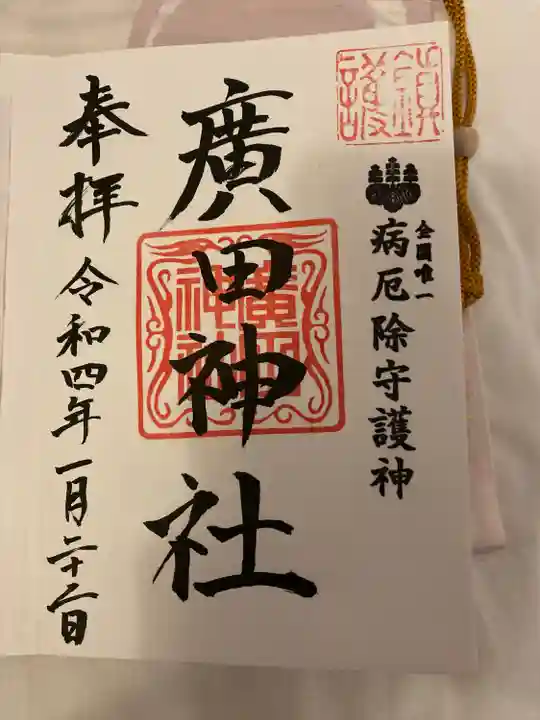 鎮護
全国唯一
病厄除守護神
廣田神社
奉拝
令和四年一月二十二日